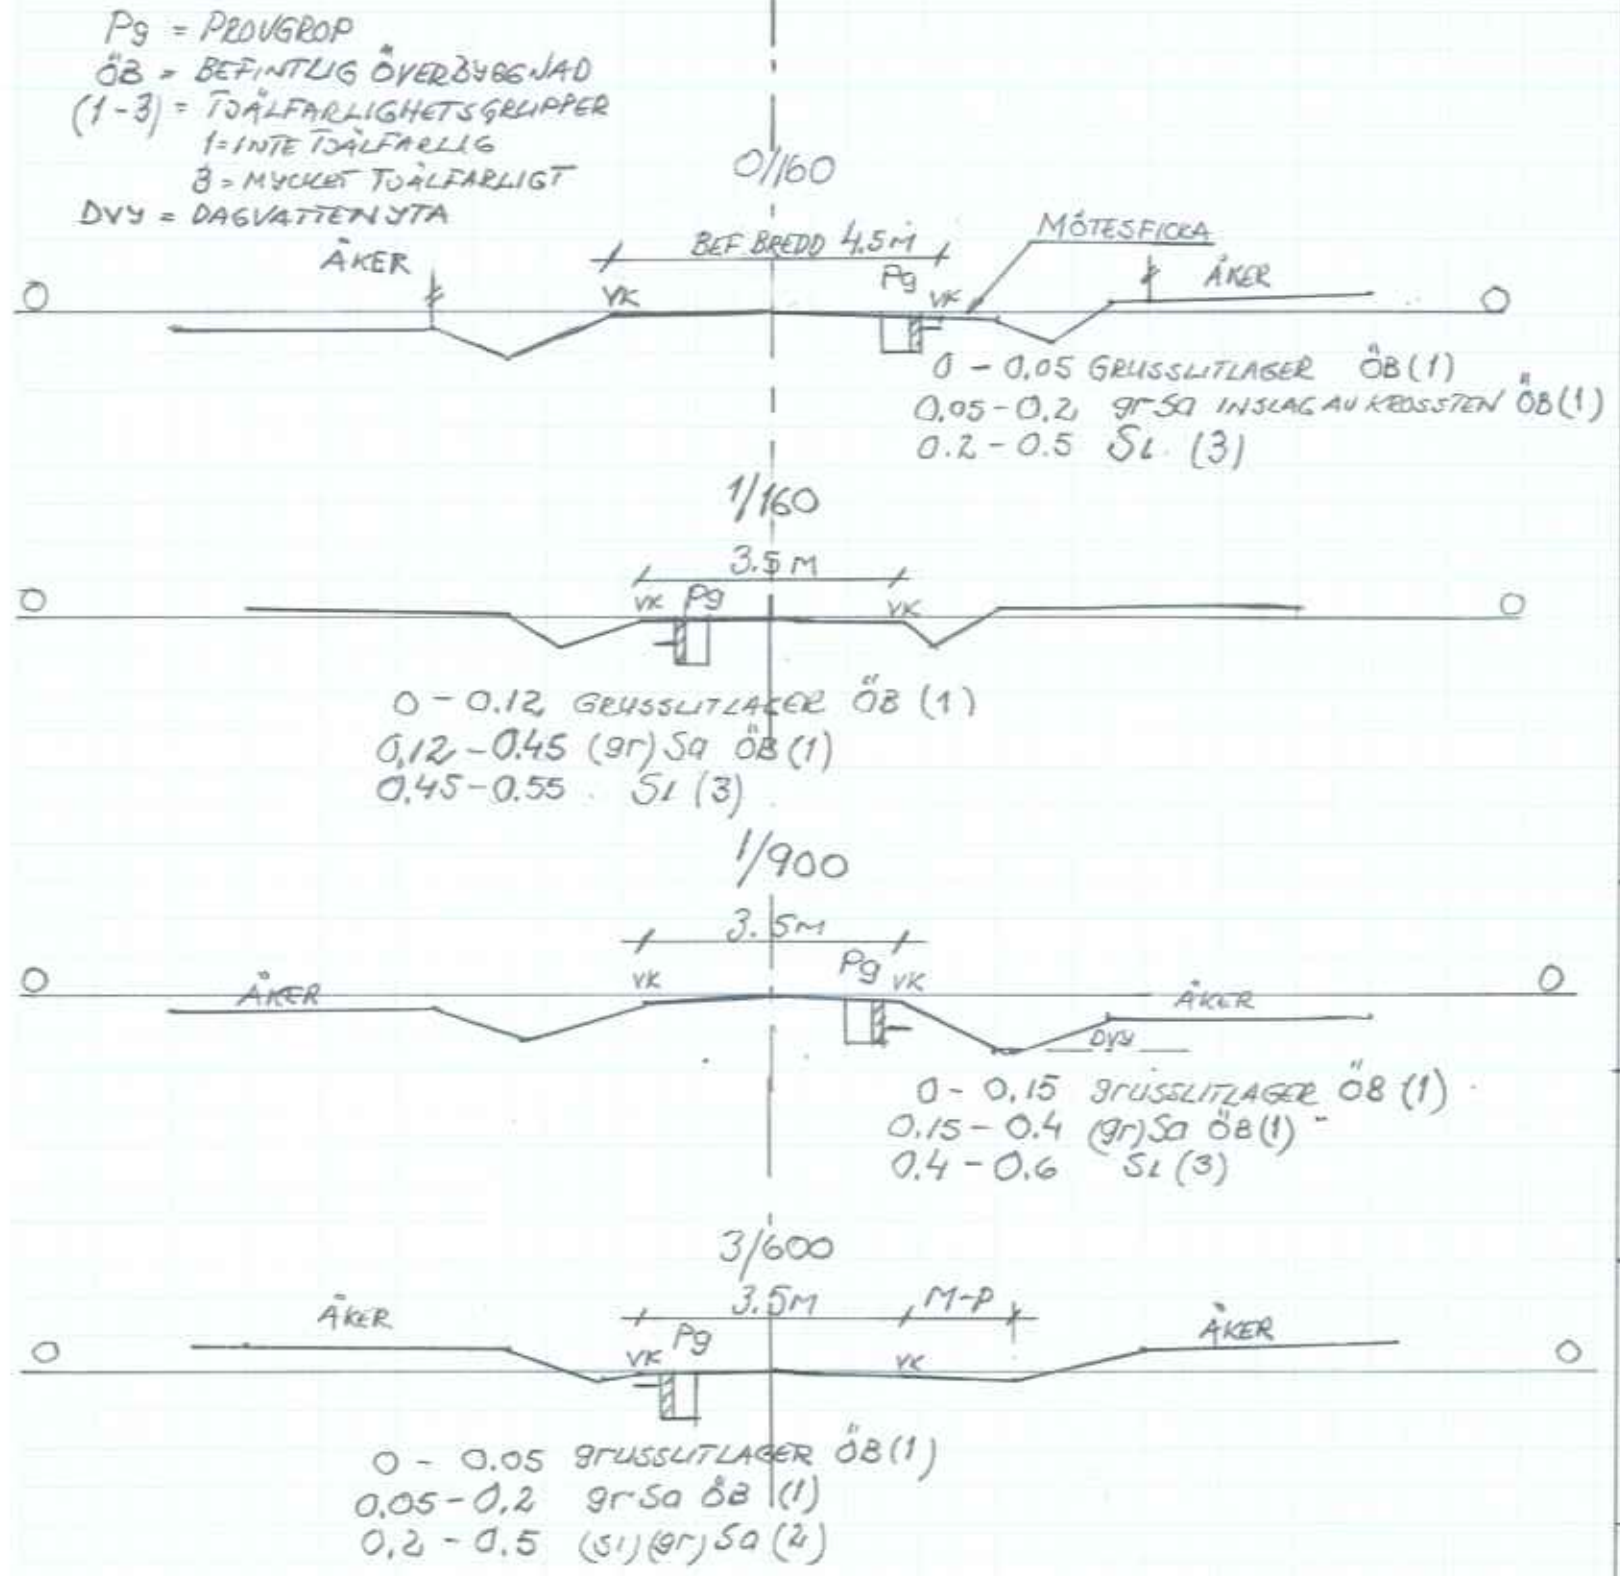 Pg = PROVGROP
ÖB = BEFINTLIG ÖVERBYGGNAD
(1-3) = TJÄLFARLIGHETSGRUPPER
1=INTE TJÄLFARLIG
3=MYCKET TJÄLFARLIGT
DVY = DAGVATTENYTA
0/160
ÅKER BEF. BREDD 4.5M MÖTESFICKA
VK Pg VK ÅKER
0 0
0 - 0.05 GRUSSLITLAGER ÖB (1)
0.05-0.2 grSa INSLAG AV KROSSTEN ÖB (1)
0.2-0.5 Si. (3)
1/160
3.5M
VK Pg VK
0 0
0 - 0.12 GRUSSLITLAGER ÖB (1)
0.12-0.45 (gr)Sa ÖB (1)
0.45-0.55 Si (3)
1/900
3.5M
VK Pg VK
0 ÅKER ÅKER 0
DVY
0 - 0.15 grUSSLITLAGER ÖB (1)
0.15-0.4 (gr)Sa ÖB(1)
0.4-0.6 Si (3)
3/600
ÅKER 3.5M M-P ÅKER
VK Pg VK
0 0
0 - 0.05 grUSSLITLAGER ÖB(1)
0.05-0.2 grSa ÖB (1)
0.2-0.5 (si)(gr)Sa (2)